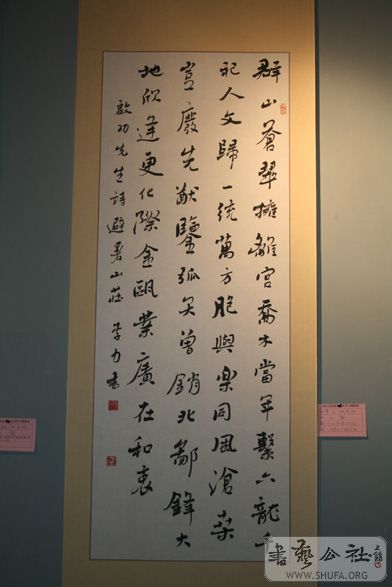 群山蒼翠擁離宮喬木當年繫六龍千
祀人文歸一統萬方胞與樂同風滄桑
豈廢先猷鑒弧矢曾銷北鄙鋒大
地欣逢更化際金甌業廣在和衷
啟功先生詩避暑山莊 李力書
書藝公社
WWW.SHUFA.ORG